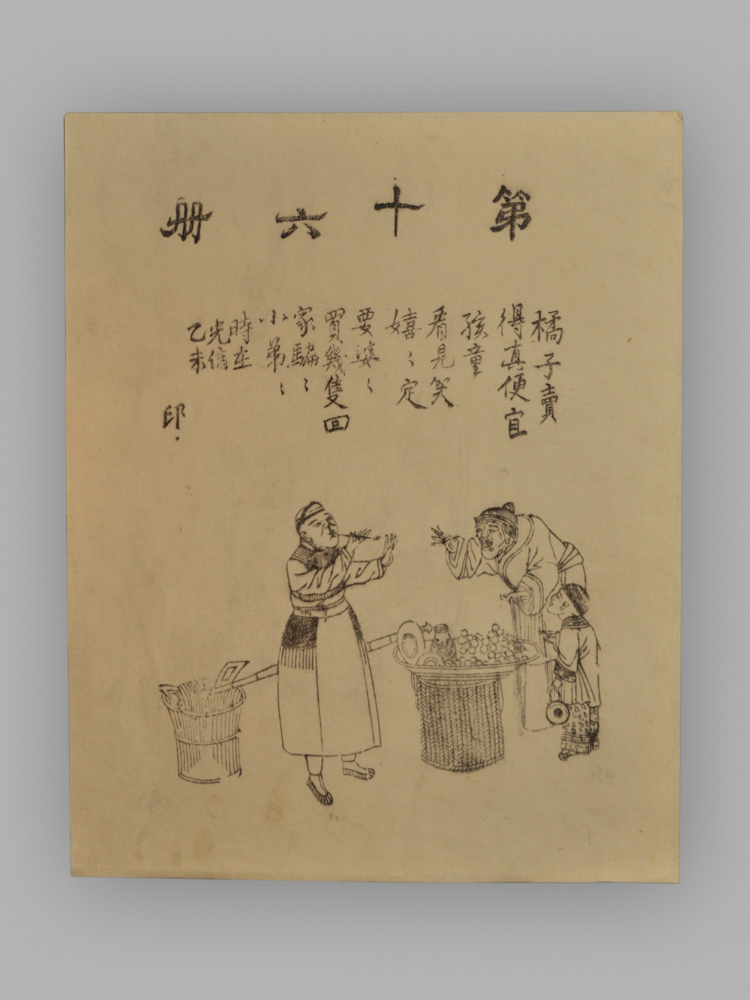 第十六册
橘子賣
得真便宜
孩童
看見笑
嬉〻定
要婆〻
買幾隻回
家騙〻
小弟〻
時在
光緒
乙未
印